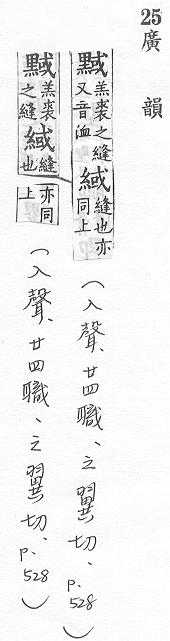 25 廣韻
䵧羔裘之縫又音洫緎縫也亦同上(入聲、廿四職、之翼切、p.528)
䵧羔裘之縫緎縫也亦同上(入聲、廿四職、之翼切、p.528)